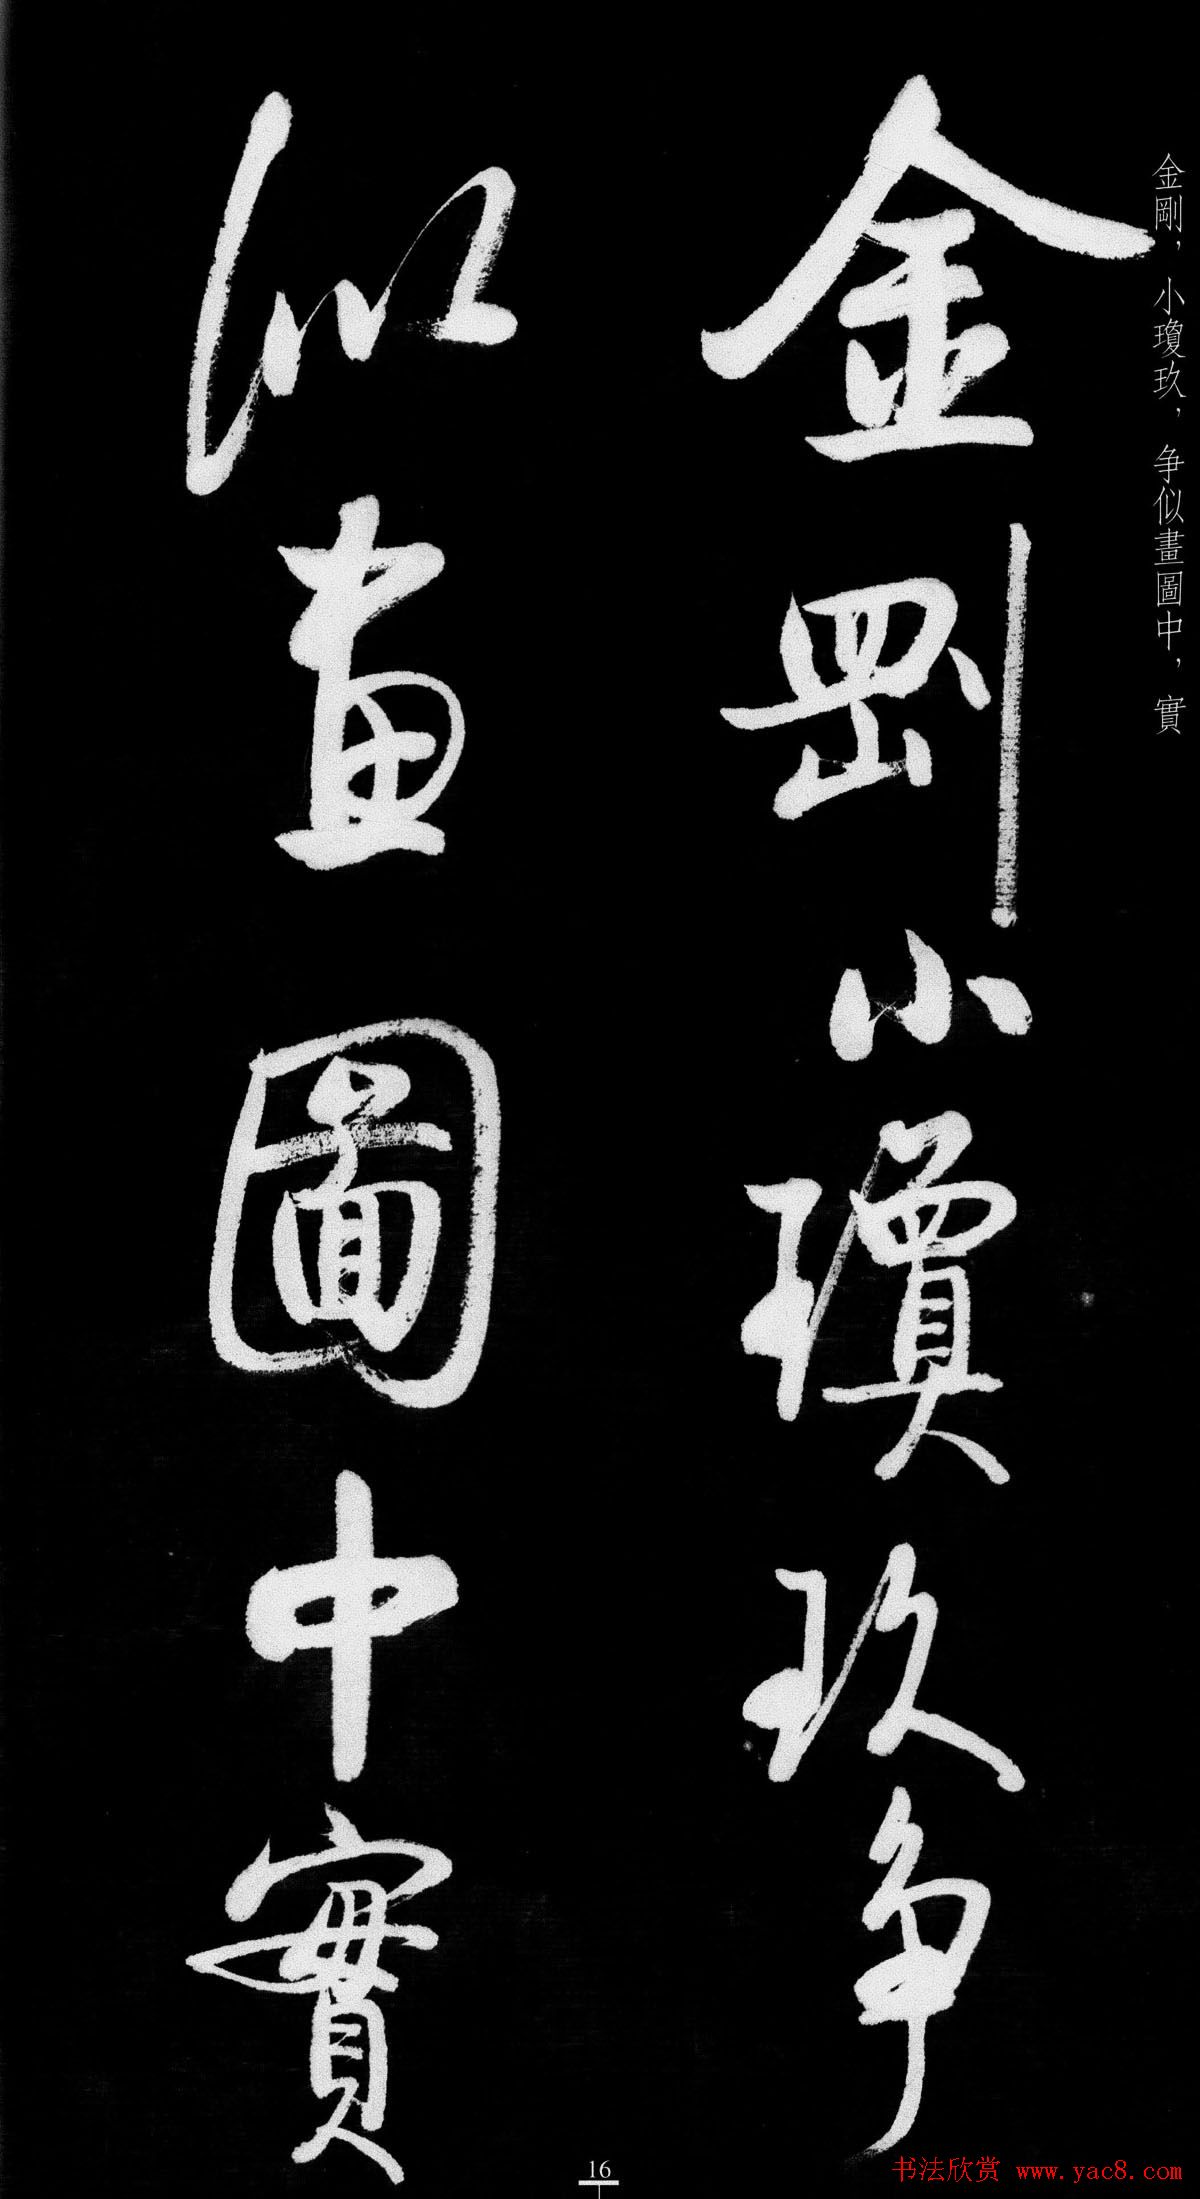 金剛，小瓊玖，争似畫圖中，實
金剛小瓊玖争
似畫圖中實
16
书法欣赏 www.yac8.com